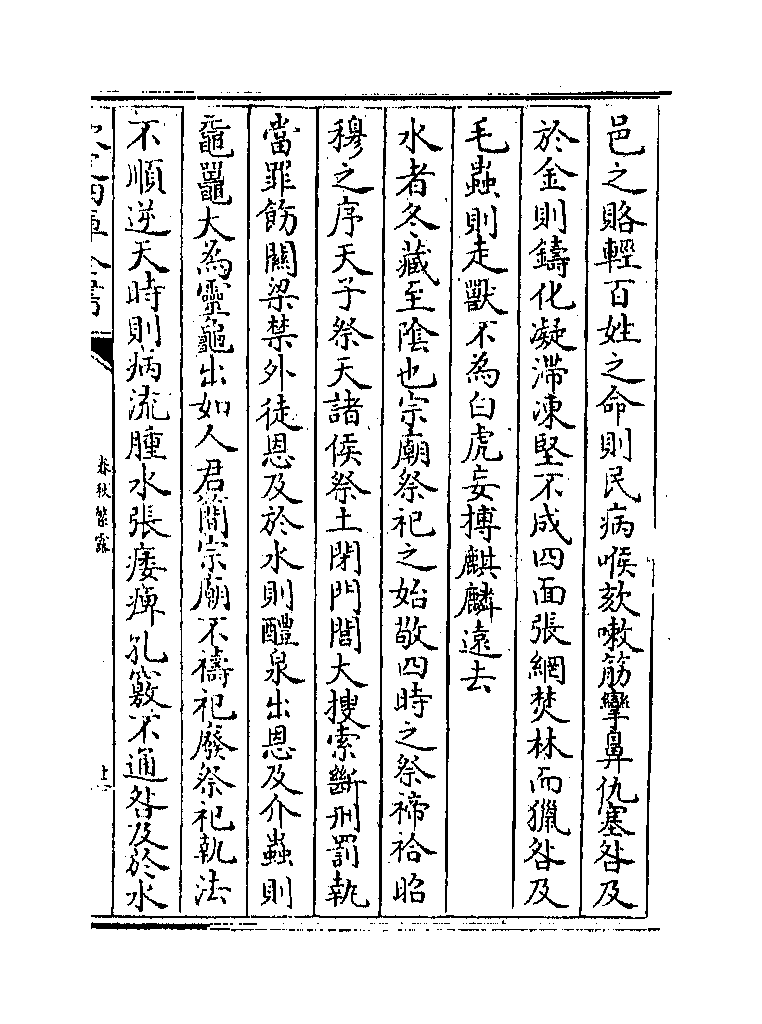 邑之賂輕百姓之命則民病喉欬嗽筋攣鼻仇塞咎及
於金則鑄化凝滯凍堅不成四面張網焚林而獵咎及
毛蟲則走獸不為白虎妄搏麒麟遠去
水者冬藏至陰也宗廟祭祀之始敬四時之祭禘祫昭
穆之序天子祭天諸侯祭土閉門閭大搜索斷刑罰執
當罪飭關梁禁外徒恩及於水則醴泉出恩及介蟲則
黿鼉大為靈龜出如人君簡宗廟不禱祀廢祭祀執法
不順逆天時則病流腫水張痿痺孔竅不通咎及於水
春秋繁露